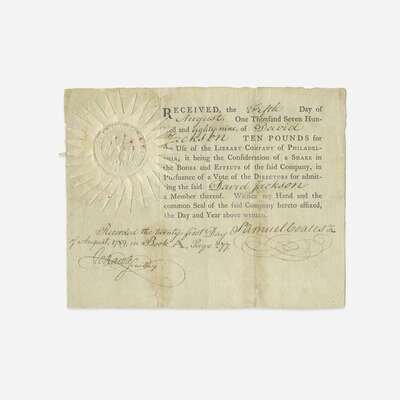 RECEIVED, the Fifth Day of
August One Thousand Seven Hun-
dred and Eighty nine, of David
Jackson TEN POUNDS for
the Use of the LIBRARY COMPANY of PHILADEL-
PHIA; it being the Consideration of a SHARE in
the BOOKS and EFFECTS of the said Company, in
Pursuance of a Vote of the DIRECTORS for admit-
ting the said David Jackson
a Member thereof. Witness my Hand and the
common Seal of the said Company hereto affixed,
the Day and Year above written.
Samuel Coates
Recorded the twenty first Day
of August, 1789, in Book A, Page 277